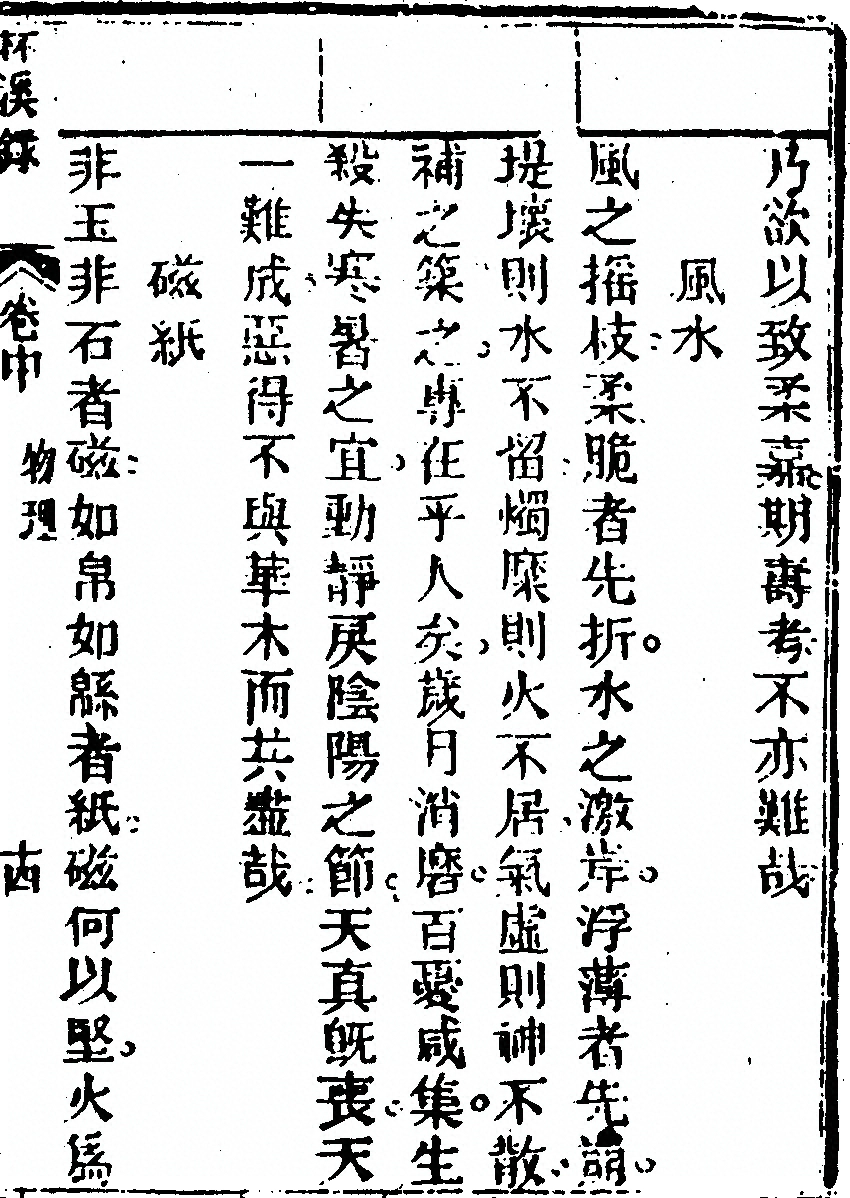 乃欲以致柔嘉期壽考不亦難哉
風水
風之搖枝柔脆者先折水之激岸浮薄者先崩
堤壞則水不留燭糜則火不居氣虛則神不散
補之築之專在乎人矣歲月消磨百憂咸集生
殺失寒暑之宜動靜戾陰陽之節天真旣喪天
一難成惡得不與華木而共盡哉
磁紙
非玉非石者磁如帛如緜者紙磁何以堅火爲
杯溪錄
卷中
物理
十四